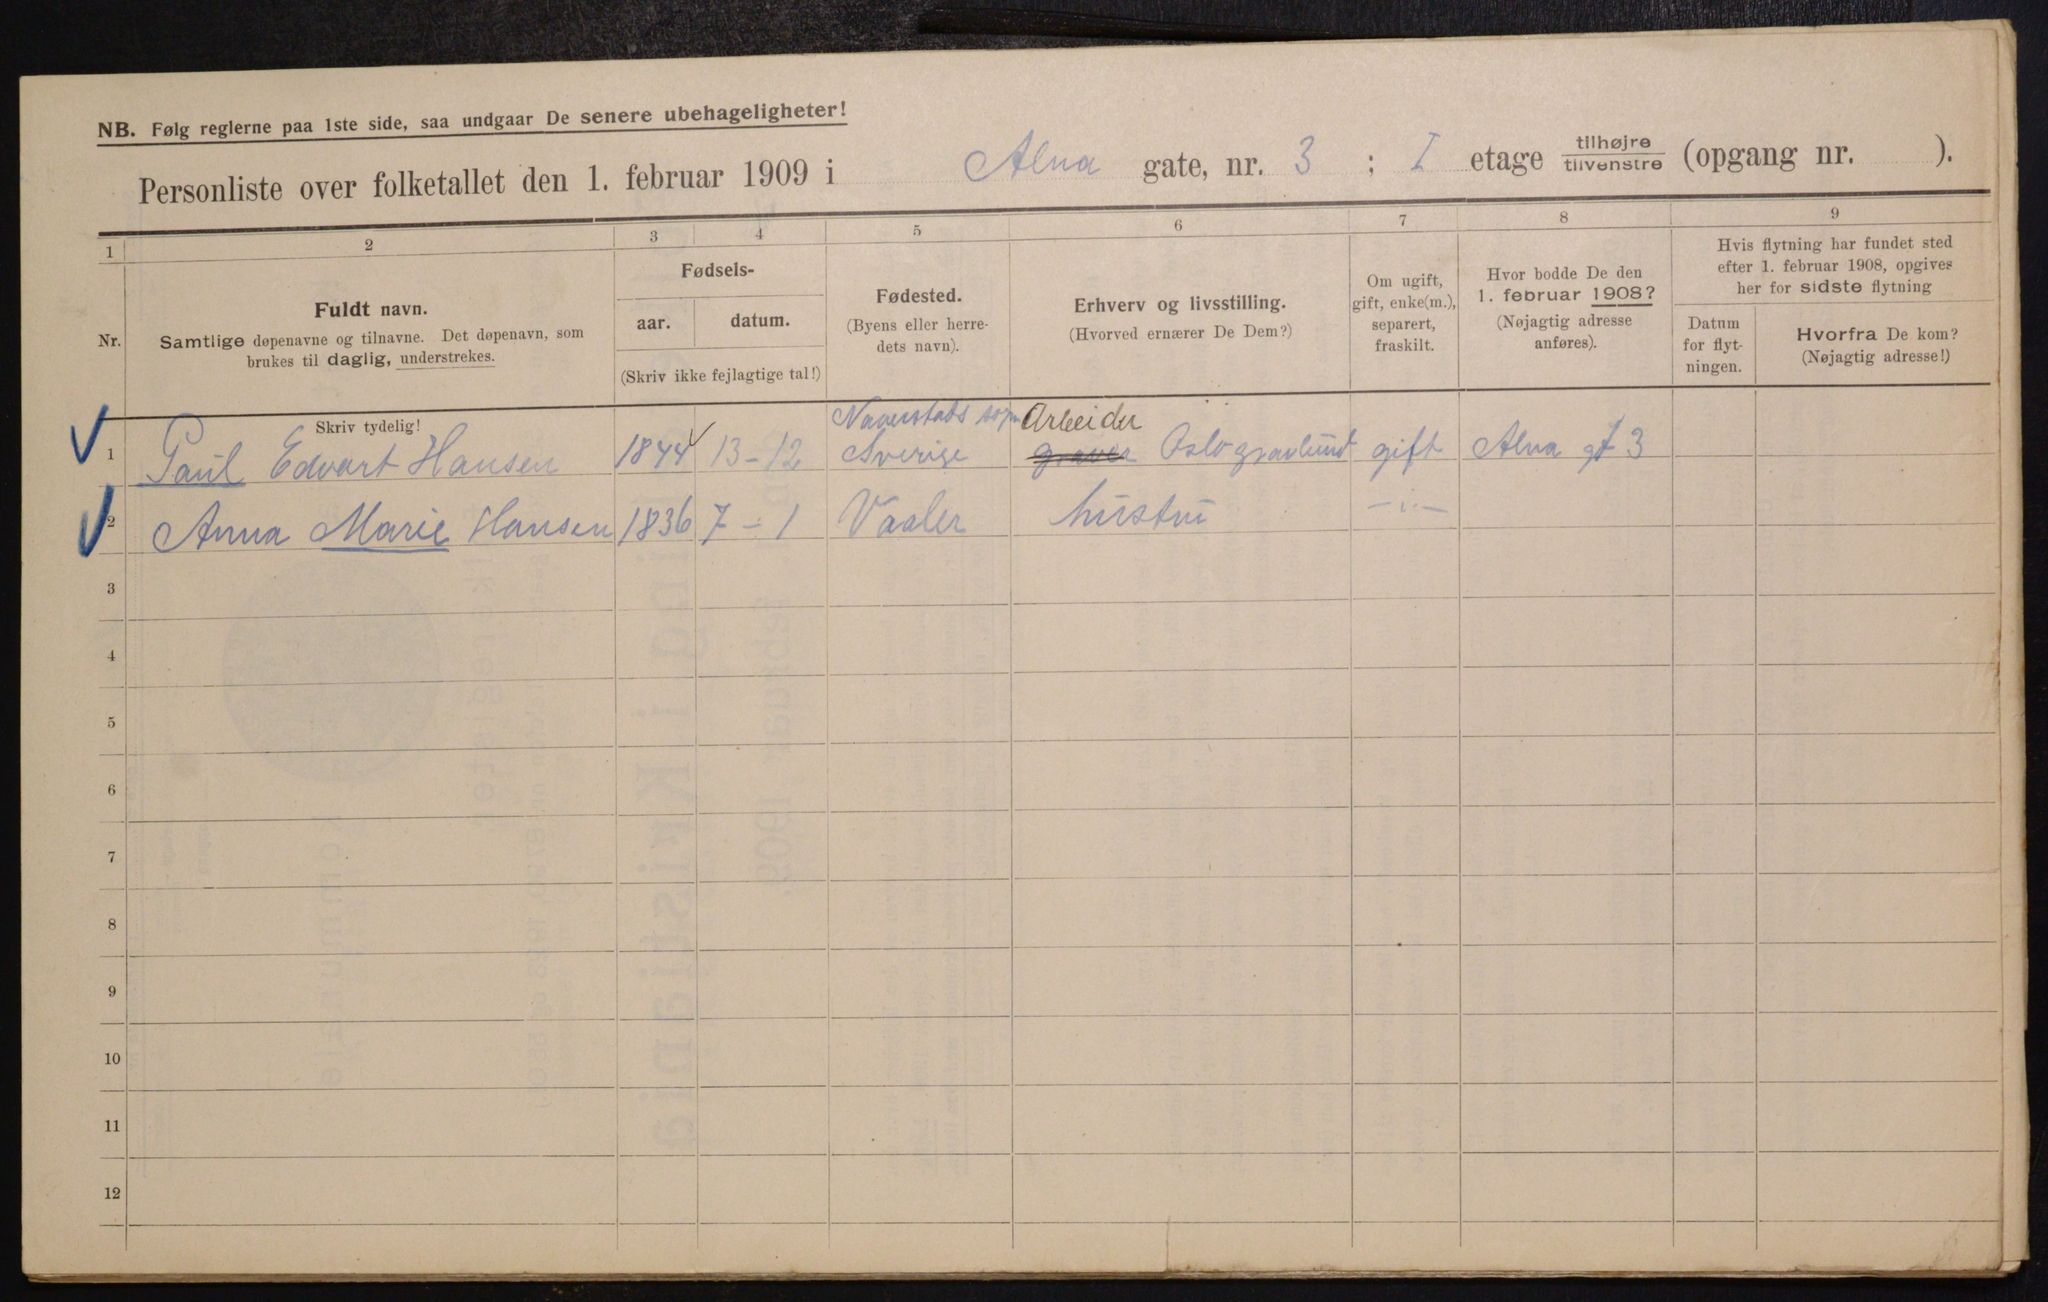 NB. Følg reglerne paa 1ste side, saa undgaar De senere ubehageligheter!
Personliste over folketallet den 1. februar 1909 i Alna gate, nr. 3 ; I etage tilhøjre / tilvenstre (opgang nr. ).
1 2 3 4 5 6 7 8 9
Nr.
Fuldt navn.
Samtlige døpenavne og tilnavne. Det døpenavn, som
brukes til daglig, understrekes.
Fødsels-
aar. datum.
(Skriv ikke fejlagtige tal!)
Fødested.
(Byens eller herre-
dets navn).
Erhverv og livsstilling.
(Hvorved ernærer De Dem?)
Om ugift,
gift, enke(m.),
separert,
fraskilt.
Hvor bodde De den
1. februar 1908?
(Nøjagtig adresse
anføres).
Hvis flytning har fundet sted
efter 1. februar 1908, opgives
her for sidste flytning
Datum
for flyt-
ningen.
Hvorfra De kom?
(Nøjagtig adresse!)
Skriv tydelig!
Naverstads sogn Arbeider
1 Paul Edvart Hansen 1844 13-12 Sverige graver Oslo gravlund gift Alna gt 3
2 Anna Marie Hansen 1836 7-1 Vaaler hustru -"-
3
4
5
6
7
8
9
10
11
12